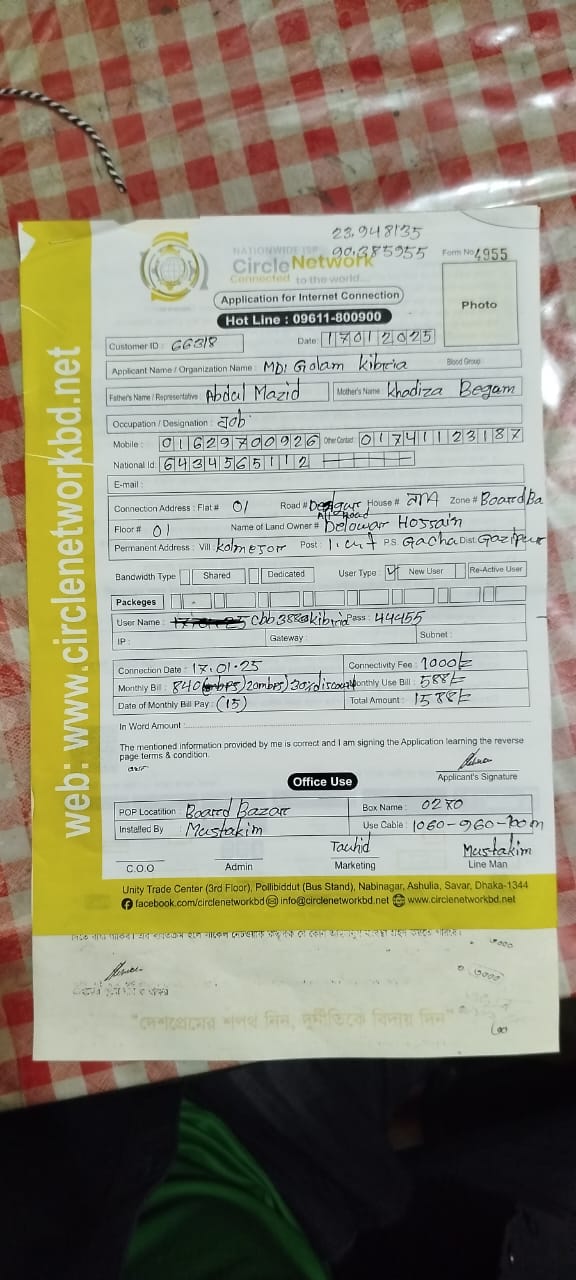 23.948135
90.385955
NATIONWIDE ISP
CircleNetwork
Connected to the world...
Form No 4955
Application for Internet Connection
Hot Line : 09611-800900
Photo
Customer ID : 66318 Date: 17012025
Applicant Name / Organization Name : MD: Golam kibria Blood Group
Father's Name / Representative Abdul Mazid Mother's Name Khadiza Begam
Occupation / Designation : জব
Mobile : 01629700926 Other Contact 01741123187
National Id 6434565112
E-mail :
Connection Address : Flat # 01 Road # House # নাই Zone # Board Ba
Floor # 01 Name of Land Owner # Delowar Hossain
Permanent Address : Vill : Kolmesor Post : P.S Gacha Dist: Gazipur
Bandwidth Type Shared Dedicated User Type : New User Re-Active User
Packeges
User Name : Pass : 44455
IP : Gateway : Subnet :
Connection Date : 17.01.25 Connectivity Fee : 1000/-
Monthly Bill : 840 20mbps) 30% discount Monthly Use Bill : 588/-
Date of Monthly Bill Pay : (15) Total Amount : 1588/-
In Word Amount :
The mentioned information provided by me is correct and I am signing the Application learning the reverse
page terms & condition.
Applicant's Signature
Office Use
POP Locatition : Board Bazar Box Name : 0270
Installed By Mustakim Use Cable : 1060-960-100m
Tauhid Mustakim
C.O.O Admin Marketing Line Man
Unity Trade Center (3rd Floor), Pollibiddut (Bus Stand), Nabinagar, Ashulia, Savar, Dhaka-1344
facebook.com/circlenetworkbd info@circlenetworkbd.net www.circlenetworkbd.net
web: www.circlenetworkbd.net
"দেশপ্রেমের শপথ নিন, দুর্নীতিকে বিদায় দিন"